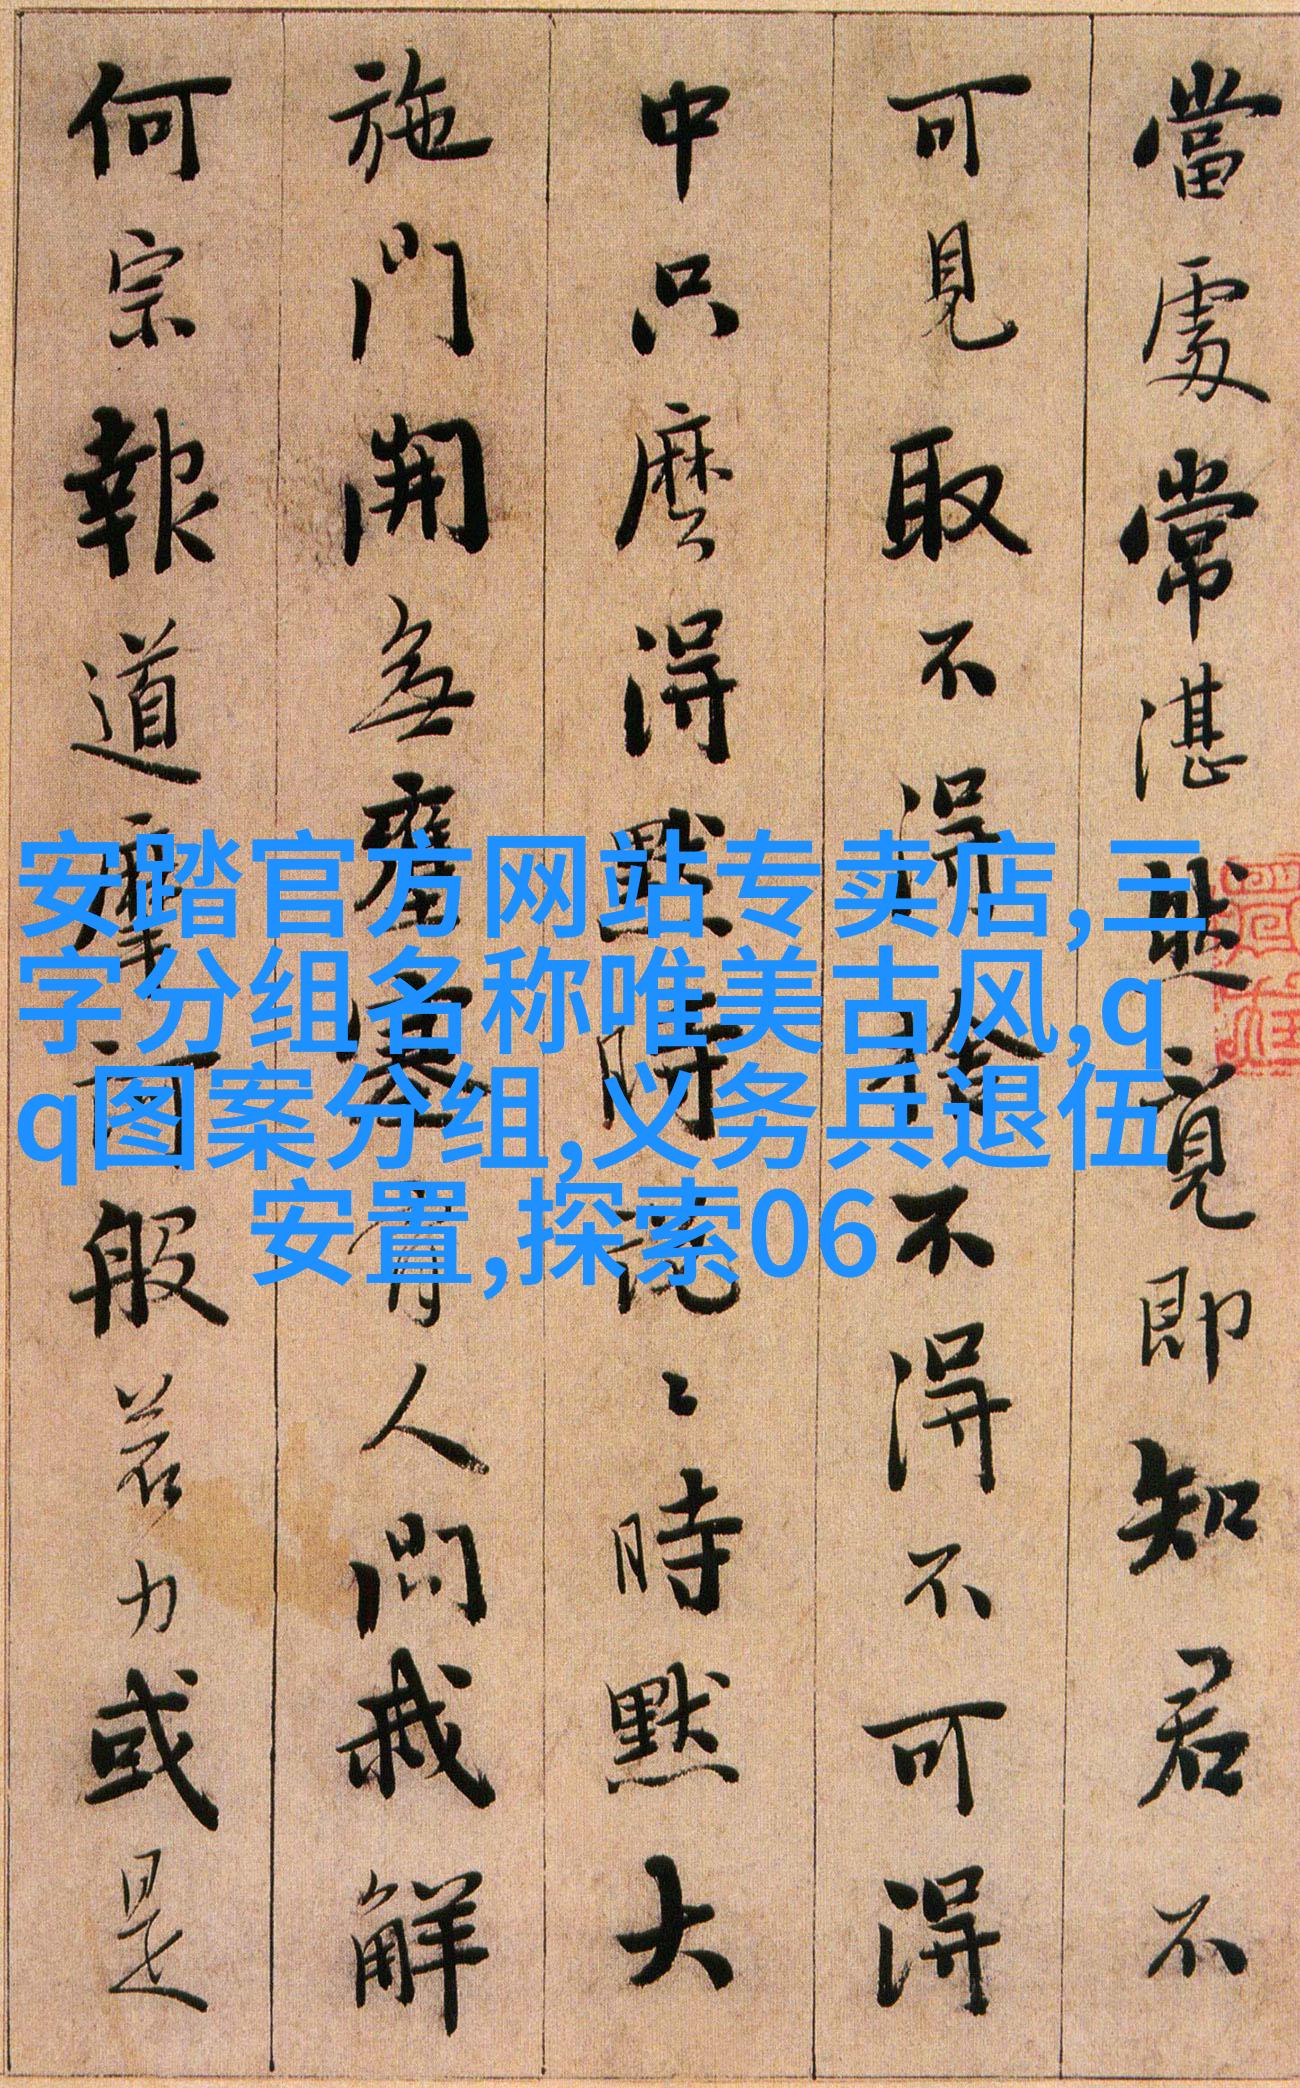 當處常湛然覓即知君不
可見取不得捨不得不可得
中只麼得默時説〻時默大
施門開無壅塞有人問我解
何宗報道摩訶般若力或是
安踏官方网站专卖店,三
字分组名称唯美古风,q
q图案分组,义务兵退伍
安置,探索06